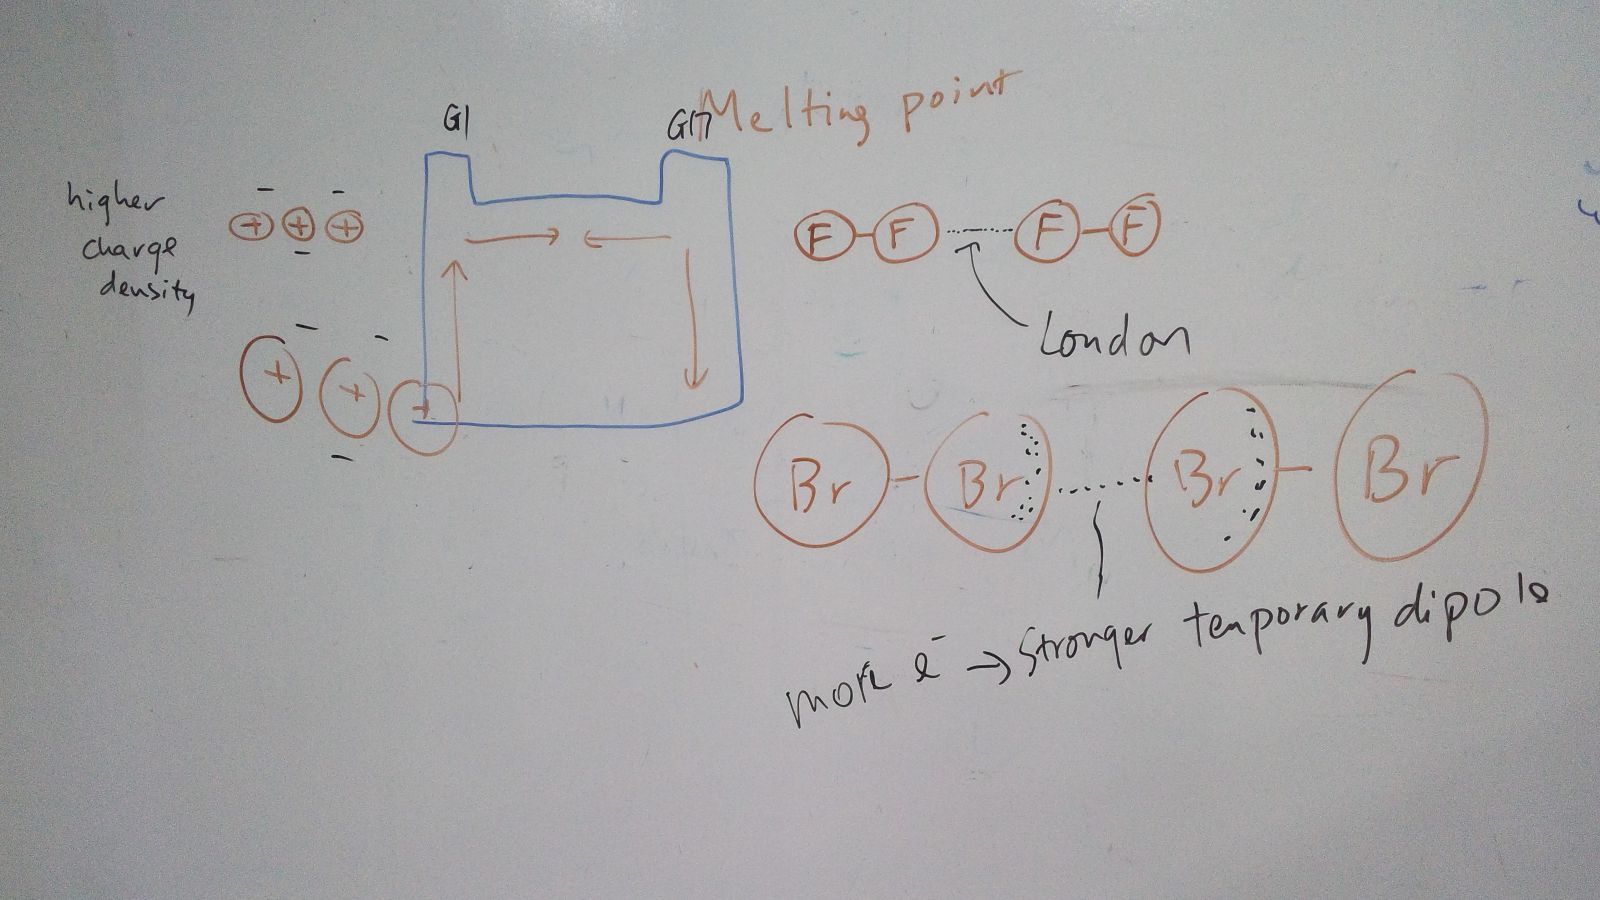 Melting point
G1
G17
higher
charge
density
− −
+ + +
−
− −
+ + +
−
F F F F
London
Br Br Br Br
more e⁻ → stronger temporary dipole